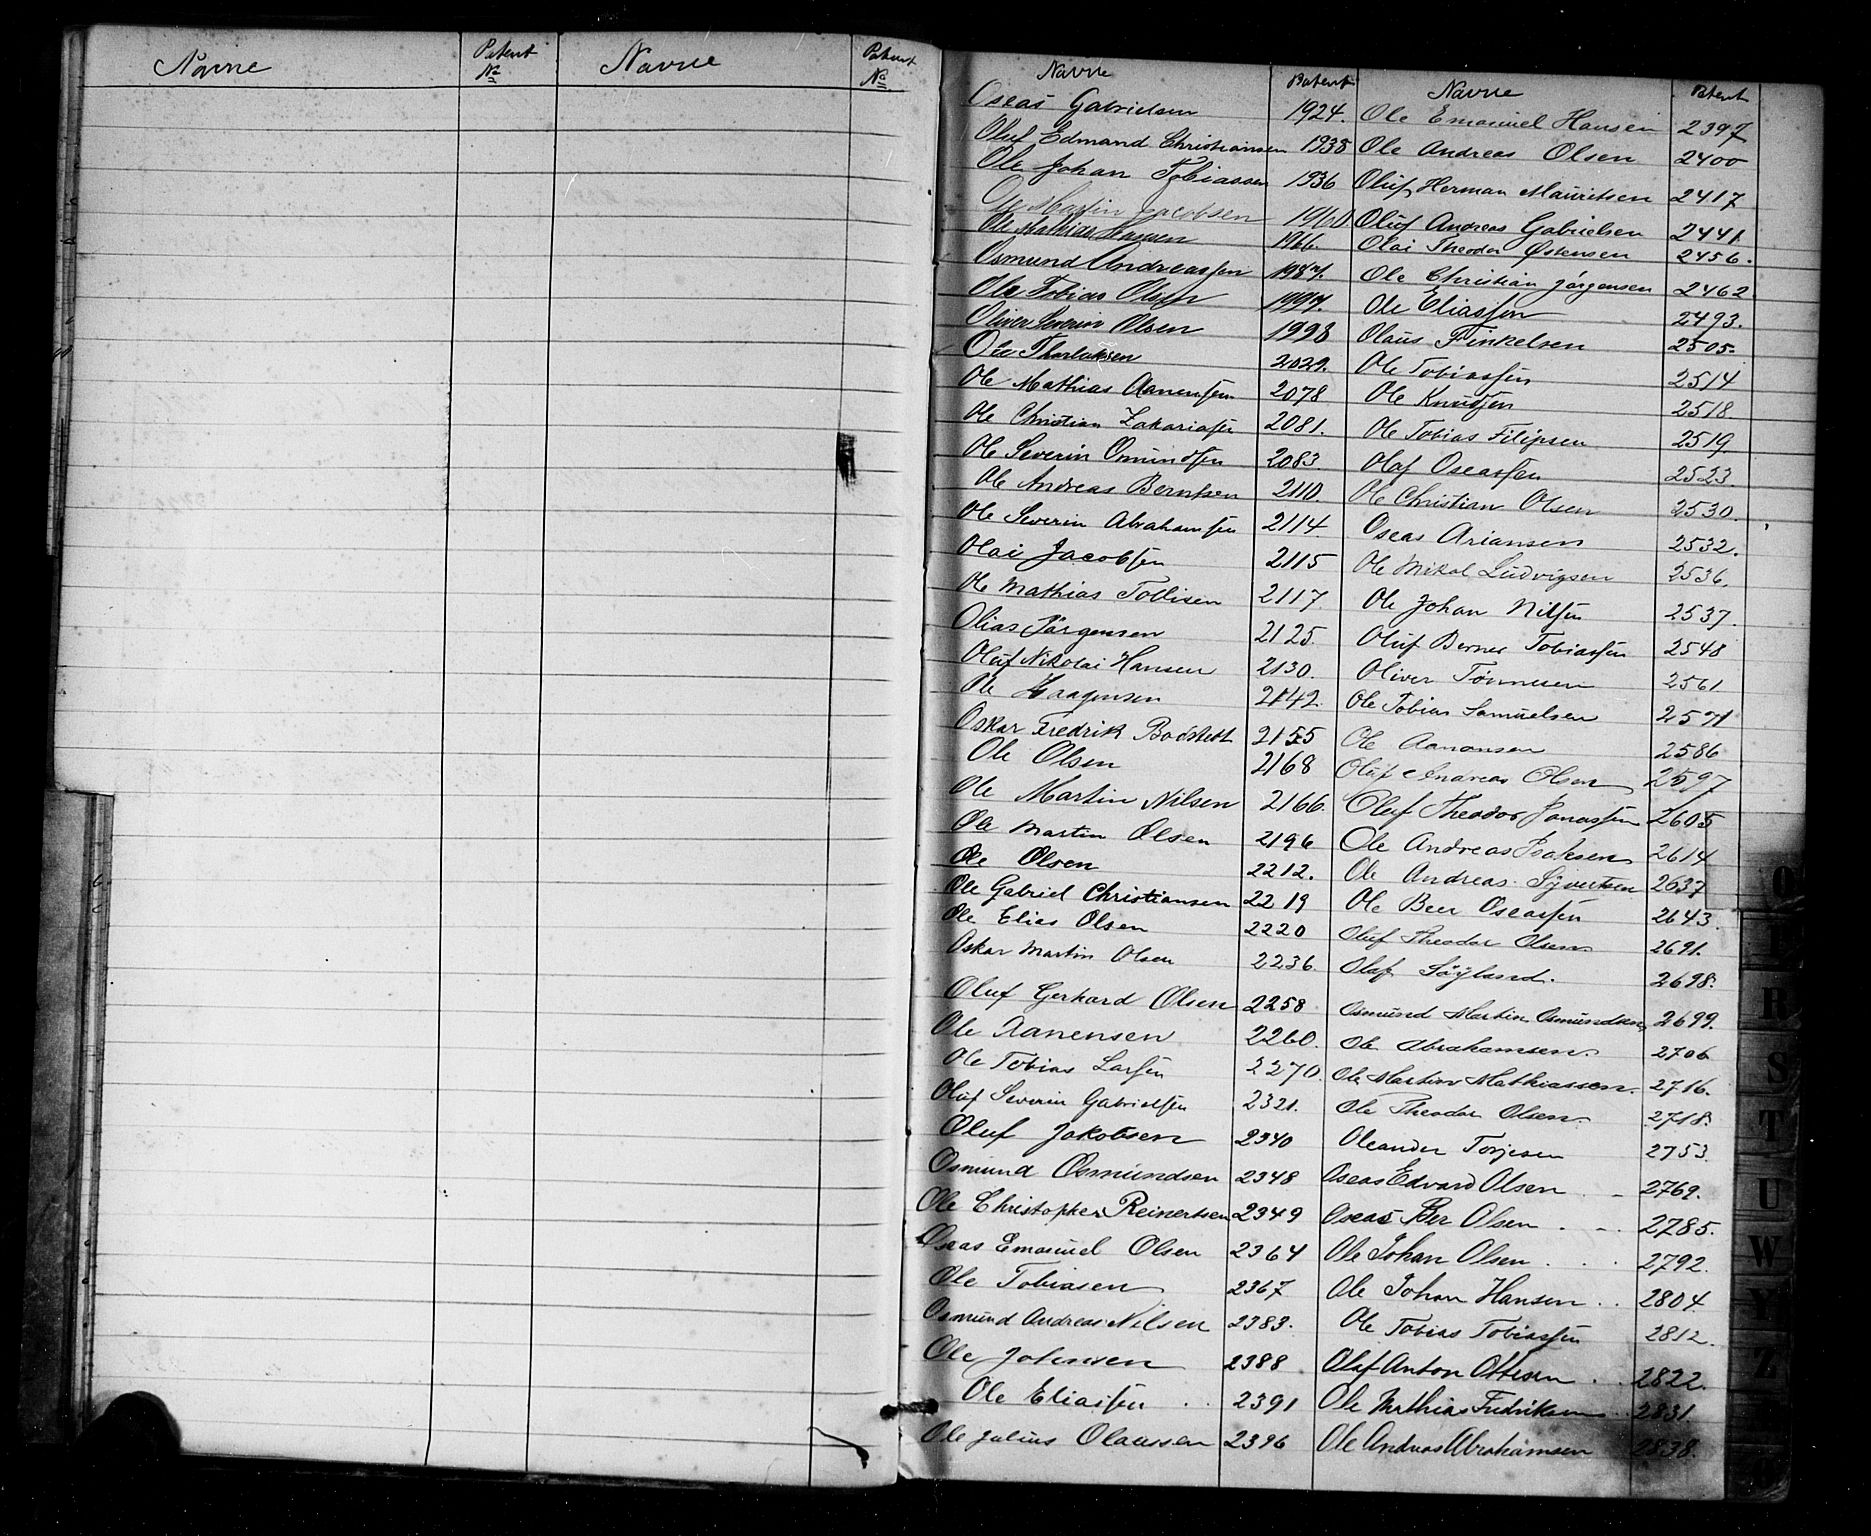 Navne
Patent
No
Navne
Patent
No
Navne
Patent
Oseas Gabrielsen 1924.
Oluf Edmand Christiansen 1935
Ole Johan Tobiassen 1936
Ole Martin Jacobsen 1960.
Ole Mathias Hansen 1966.
Osmund Andreassen 1987.
Ole Tobias Olsen 1997.
Oliver Severin Olsen 1998
Ole Tharluksen 2029.
Ole Mathias Aanensen 2078
Ole Christian Zakariasen 2081.
Ole Severin Omundsen 2083.
Ole Andreas Berntsen 2110.
Ole Severin Abrahamsen 2114.
Olai Jacobsen 2115
Ole Mathias Tollisen 2117
Olias Jörgensen 2125.
Oluf Nikolai Hansen 2130.
Ole Haagensen 2142.
Oskar Fredrik Bodstedt 2155
Ole Olsen 2168
Ole Martin Nilsen 2166.
Ole Martin Olsen 2196
Ole Olsen 2212.
Ole Gabriel Christiansen 2219
Ole Elias Olsen 2220
Oskar Martin Olsen 2236.
Oluf Gerhard Olsen 2258
Ole Aanensen 2260.
Ole Tobias Larsen 2270.
Oluf Severin Gabrielsen 2321.
Oluf Jakobsen 2340
Osmund Osmundsen 2348
Ole Christopher Reinertsen 2349
Oseas Emanuel Olsen 2364
Ole Tobiasen 2367
Osmund Andreas Nilsen 2383.
Ole Johnsen 2388
Ole Eliassen 2391
Ole Julius Olaussen 2396
Navne
Patent
Ole Emanuel Hansen 2397
Ole Andreas Olsen 2400
Oluf Herman Mauritsen 2417
Oluf Andreas Gabrielsen 2441.
Olai Theodor Østensen 2456.
Ole Christian Jörgensen 2462
Ole Eliassen 2493.
Olaus Finkelsen 2505.
Ole Tobiassen 2514
Ole Knudsen 2518
Ole Tobias Filipsen 2519.
Olaf Oseassen 2523.
Ole Christian Olsen 2530.
Oseas Ariansen 2532.
Ole Mikal Ludvigsen 2536.
Ole Johan Nilsen 2537.
Oluf Berner Tobiassen 2548
Oliver Tönnesen 2561
Ole Tobias Samuelsen 2571
Ole Aanonsen 2586
Oluf Andreas Olsen 2597
Oluf Theodor Jonassen 2605
Ole Andreas Isaksen 2614
Ole Andreas Syvertsen 2637
Ole Beer Oseassen 2643.
Oluf Theodor Olsen 2691.
Olaf Söyland. 2698.
Osmund Martin Osmundsen 2699.
Ole Abrahamsen. 2706
Ole Martin Mathiassen. 2716.
Ole Theodor Olsen. 2718.
Oleander Torjesen 2753.
Oseas Edvard Olsen 2769.
Oseas Ber Olsen 2785.
Ole Johan Olsen 2792.
Ole Johan Hansen 2804
Ole Tobias Tobiassen 2812.
Olaf Anton Ottesen 2822.
Ole Mathias Fredriksen 2831
Ole Andreas Abrahamsen 2838.
O
P
R
S
T
U
W
Y
Z
Ø